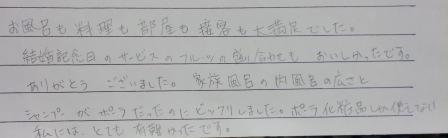 お風呂も料理も部屋も接客も大満足でした。
結婚記念日のサービスのフルーツの盛り合わせも おいしかったです。
ありがとう ございました。 家族風呂の内風呂の広さと
シャンプーがポーラだったのにビックリしました。ポーラ化粧品しか使えない
私には、とても 有難かったです。